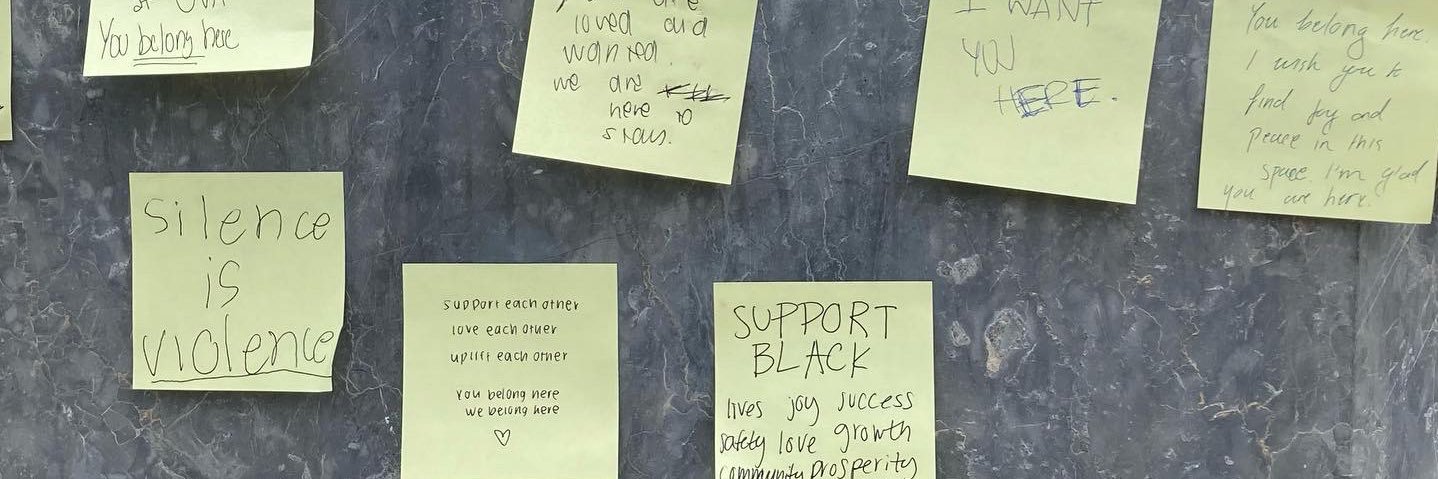 at UVA
You belong here
loved and
wanted.
we are
here to
stay.
I WANT
YOU
HERE.
You belong here.
I wish you to
find joy and
peace in this
space I'm glad
you are here.
silence
is
violence
support each other
love each other
uplift each other
you belong here
we belong here
SUPPORT
BLACK
lives joy success
safety love growth
community prosperity